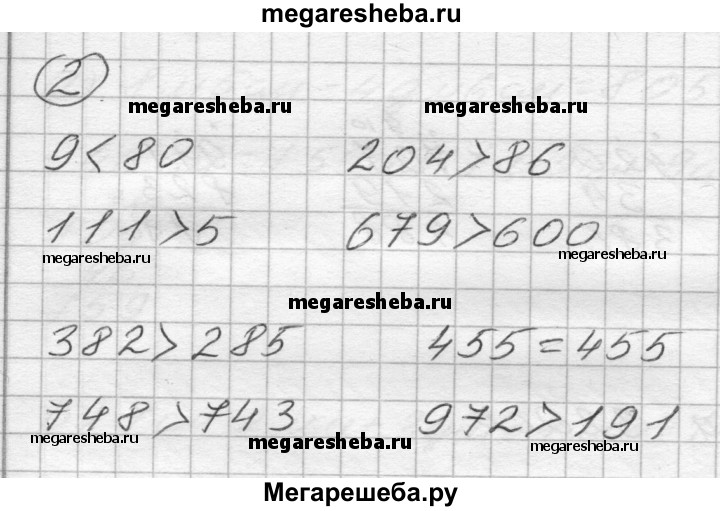 megaresheba.ru
2
megaresheba.ru megaresheba.ru
9 < 80 204 > 86
111 > 5 679 > 600
megaresheba.ru megaresheba.ru
megaresheba.ru
382 > 285 455 = 455
748 > 743 972 > 191
megaresheba.ru megaresheba.ru
Мегарешеба.ру